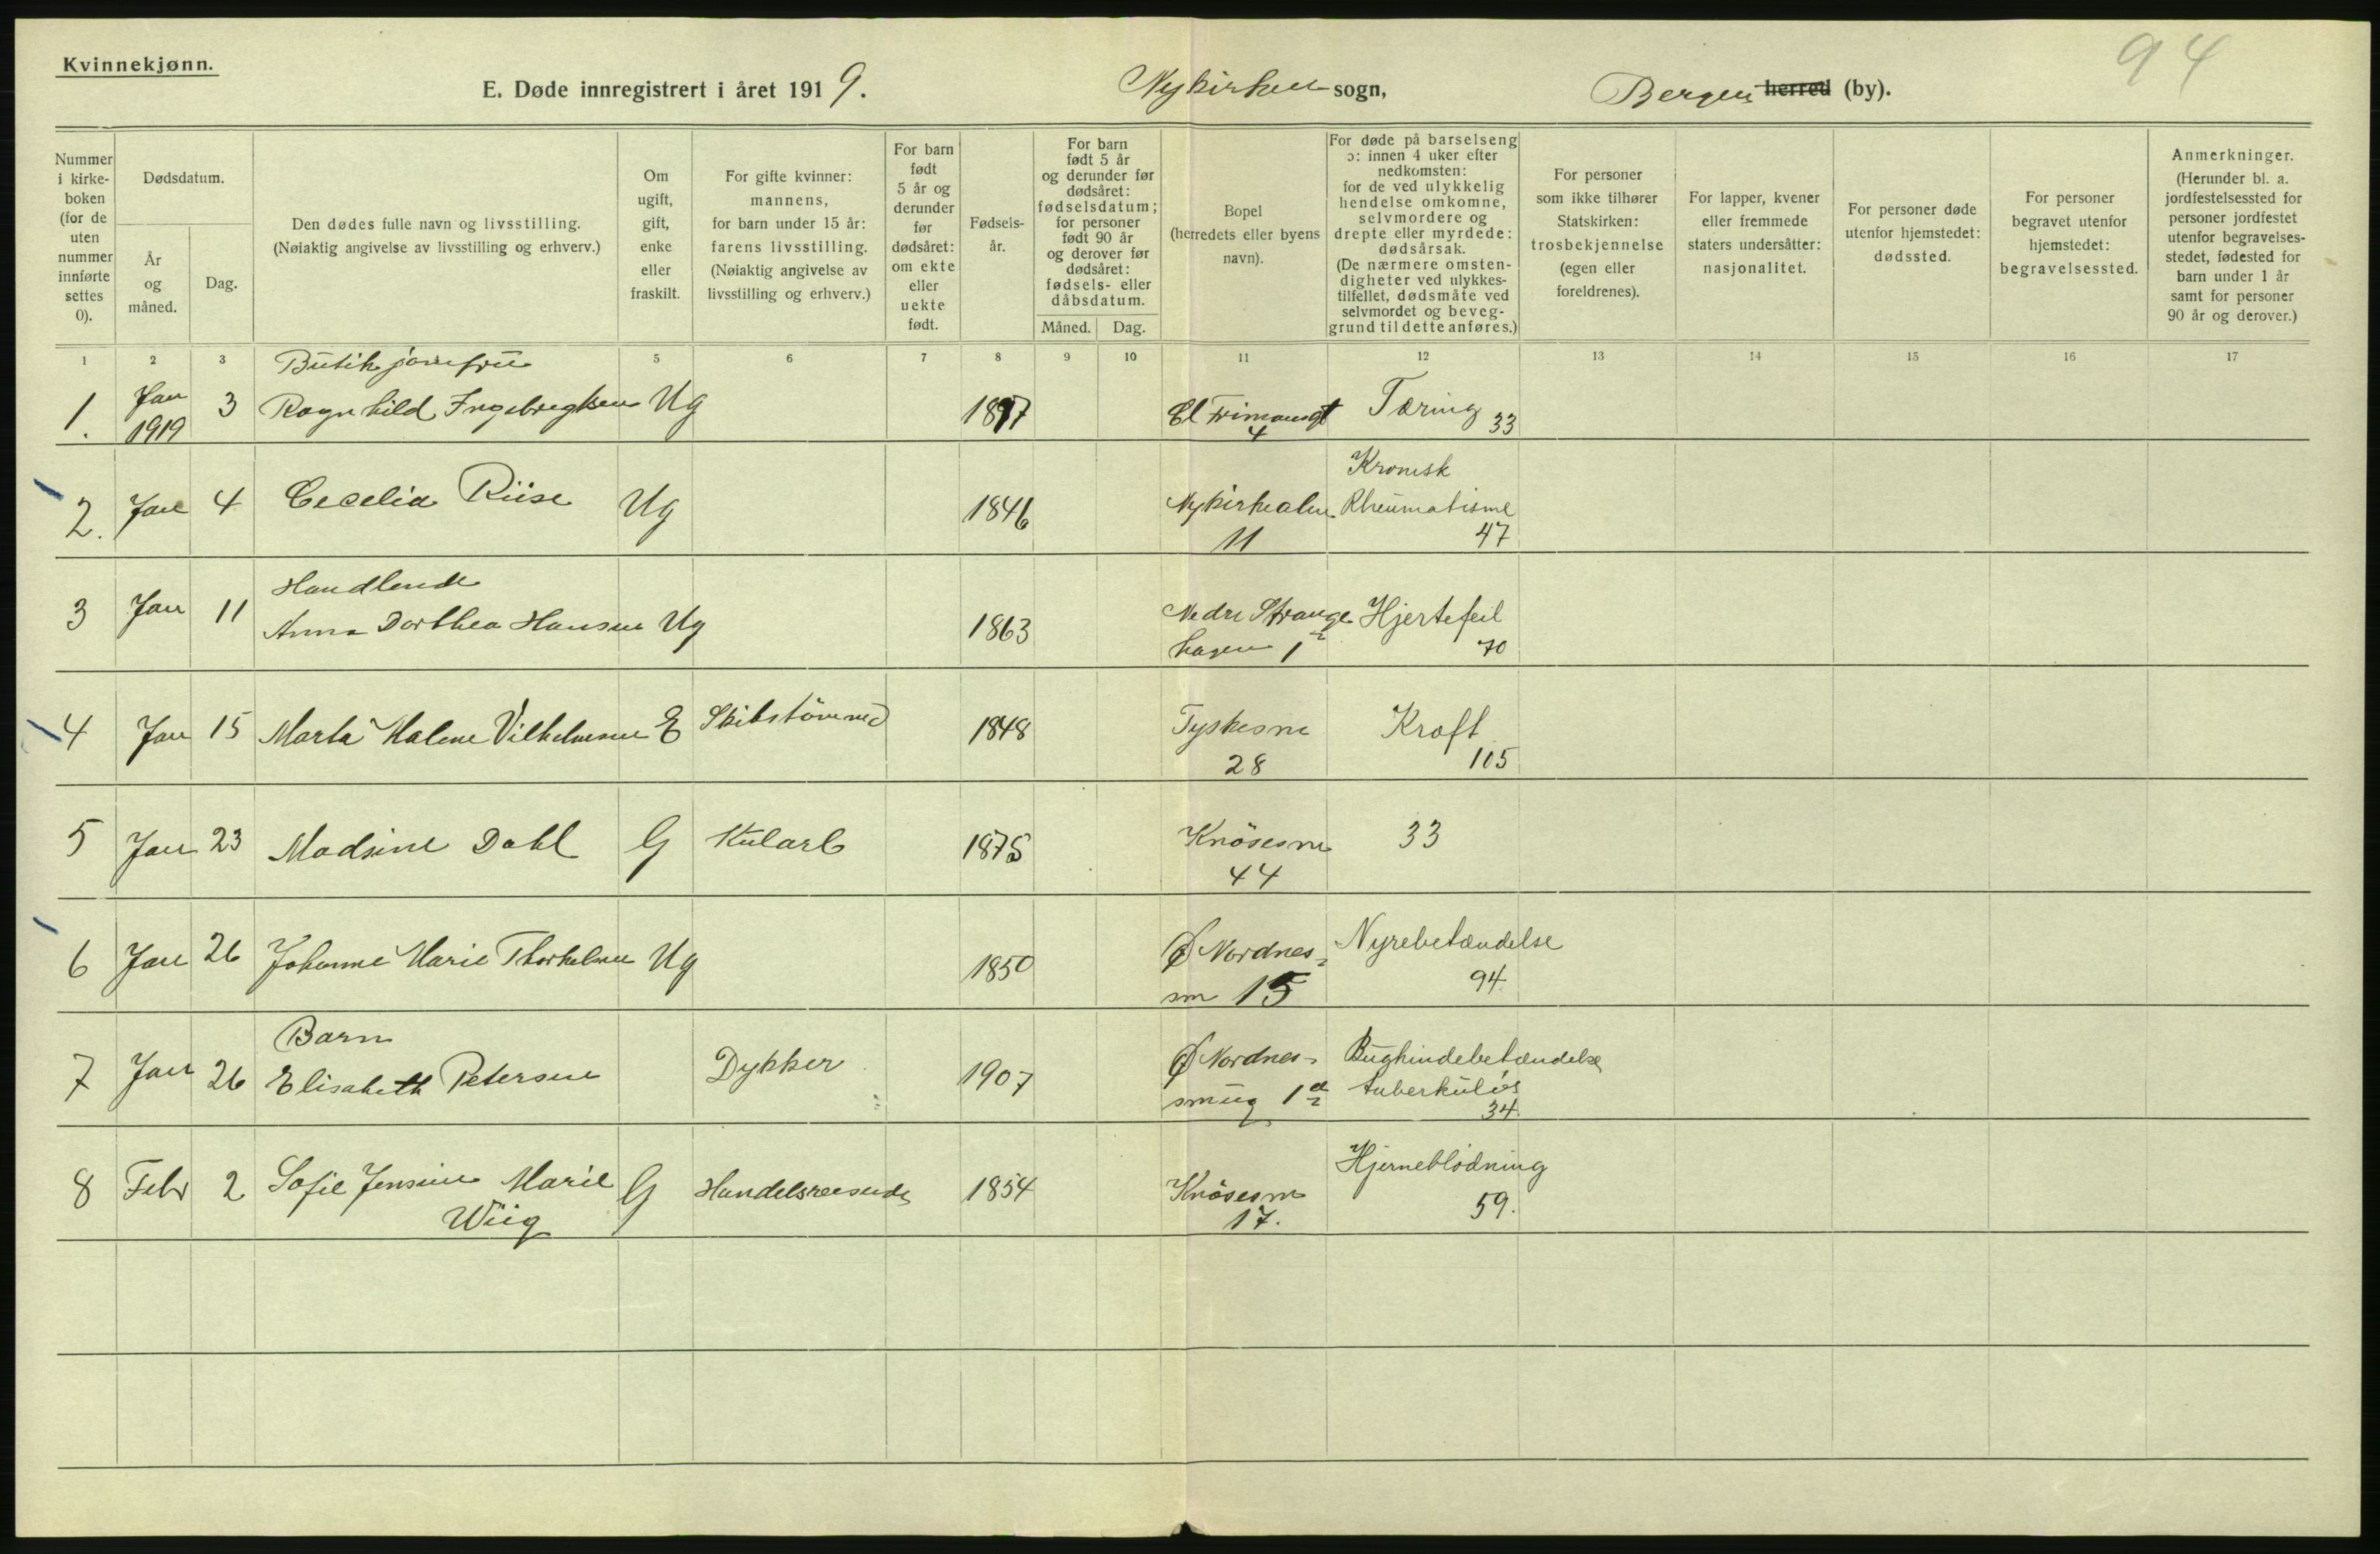 94
Kvinnekjønn.
E. Døde innregistrert i året 1919. Nykirken sogn, Bergen herred (by).
Nummer i kirkeboken (for de uten nummer innførte settes 0).
Dødsdatum.
År og måned.
Dag.
Den dødes fulle navn og livsstilling. (Nøiaktig angivelse av livsstilling og erhverv.)
Om ugift, gift, enke eller fraskilt.
For gifte kvinner: mannens, for barn under 15 år: farens livsstilling. (Nøiaktig angivelse av livsstilling og erhverv.)
For barn født 5 år og derunder før dødsåret: om ekte eller uekte født.
Fødselsår.
For barn født 5 år og derunder før dødsåret: fødselsdatum; for personer født 90 år og derover før dødsåret: fødsels- eller dåbsdatum.
Måned. Dag.
Bopel (herredets eller byens navn).
For døde på barselseng ɔ: innen 4 uker efter nedkomsten: for de ved ulykkelig hendelse omkomne, selvmordere og drepte eller myrdede: dødsårsak. (De nærmere omstendigheter ved ulykkestilfellet, dødsmåte ved selvmordet og beveggrund til dette anføres.)
For personer som ikke tilhører Statskirken: trosbekjennelse (egen eller foreldrenes).
For lapper, kvener eller fremmede staters undersåtter: nasjonalitet.
For personer døde utenfor hjemstedet: dødssted.
For personer begravet utenfor hjemstedet: begravelsessted.
Anmerkninger. (Herunder bl. a. jordfestelsessted for personer jordfestet utenfor begravelsesstedet, fødested for barn under 1 år samt for personer 90 år og derover.)
1 2 3 5 6 7 8 9 10 11 12 13 14 15 16 17
Butikjomfru
1. Jan 1919 3 Ragnhild Ingebregtsen Ug 1897 Tæring 33
4
2. Jan 4 Cecelia Riise Ug 1846 Nykirkealm 11 Kronisk Rheumatisme 47
Handlende
3 Jan 11 Anna Dorthea Hansen Ug 1863 Nedre Strangehagen 1 Hjertefeil 70
4 Jan 15 Marta Malene Vilhelmsen E Skibstømmed 1848 Tyskesm 28 Kræft 105
5 Jan 23 Madsine Dahl G Kularb 1875 Knösesm 44 33
6 Jan 26 Johanne Marie Thorkelsen Ug 1850 Ø Nordnessm 15 Nyrebetændelse 94
Barn
7 Jan 26 Elisabeth Petersen Dykker 1907 Ø Nordnessmug 1 Bughindebetændelse tuberkuløs 34
8 Febr 2 Sofie Jensine Marie Wiig G Handelsreisende 1854 Knösesm 17. Hjerneblödning 59.